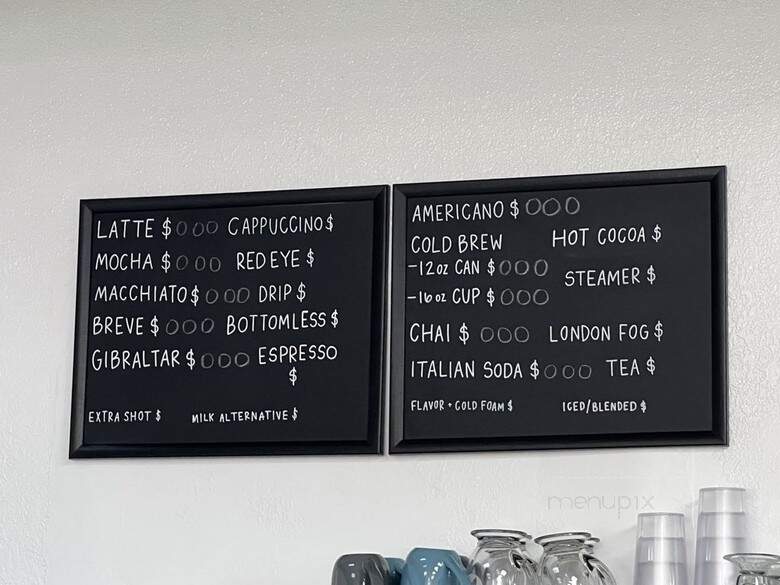 LATTE $000 CAPPUCCINO $
MOCHA $000 RED EYE $
MACCHIATO $000 DRIP $
BREVE $000 BOTTOMLESS $
GIBRALTAR $000 ESPRESSO
$
EXTRA SHOT $ MILK ALTERNATIVE $
AMERICANO $000
COLD BREW HOT COCOA $
-12oz CAN $000 STEAMER $
-16oz CUP $000
CHAI $000 LONDON FOG $
ITALIAN SODA $000 TEA $
FLAVOR + COLD FOAM $ ICED/BLENDED $
menupix